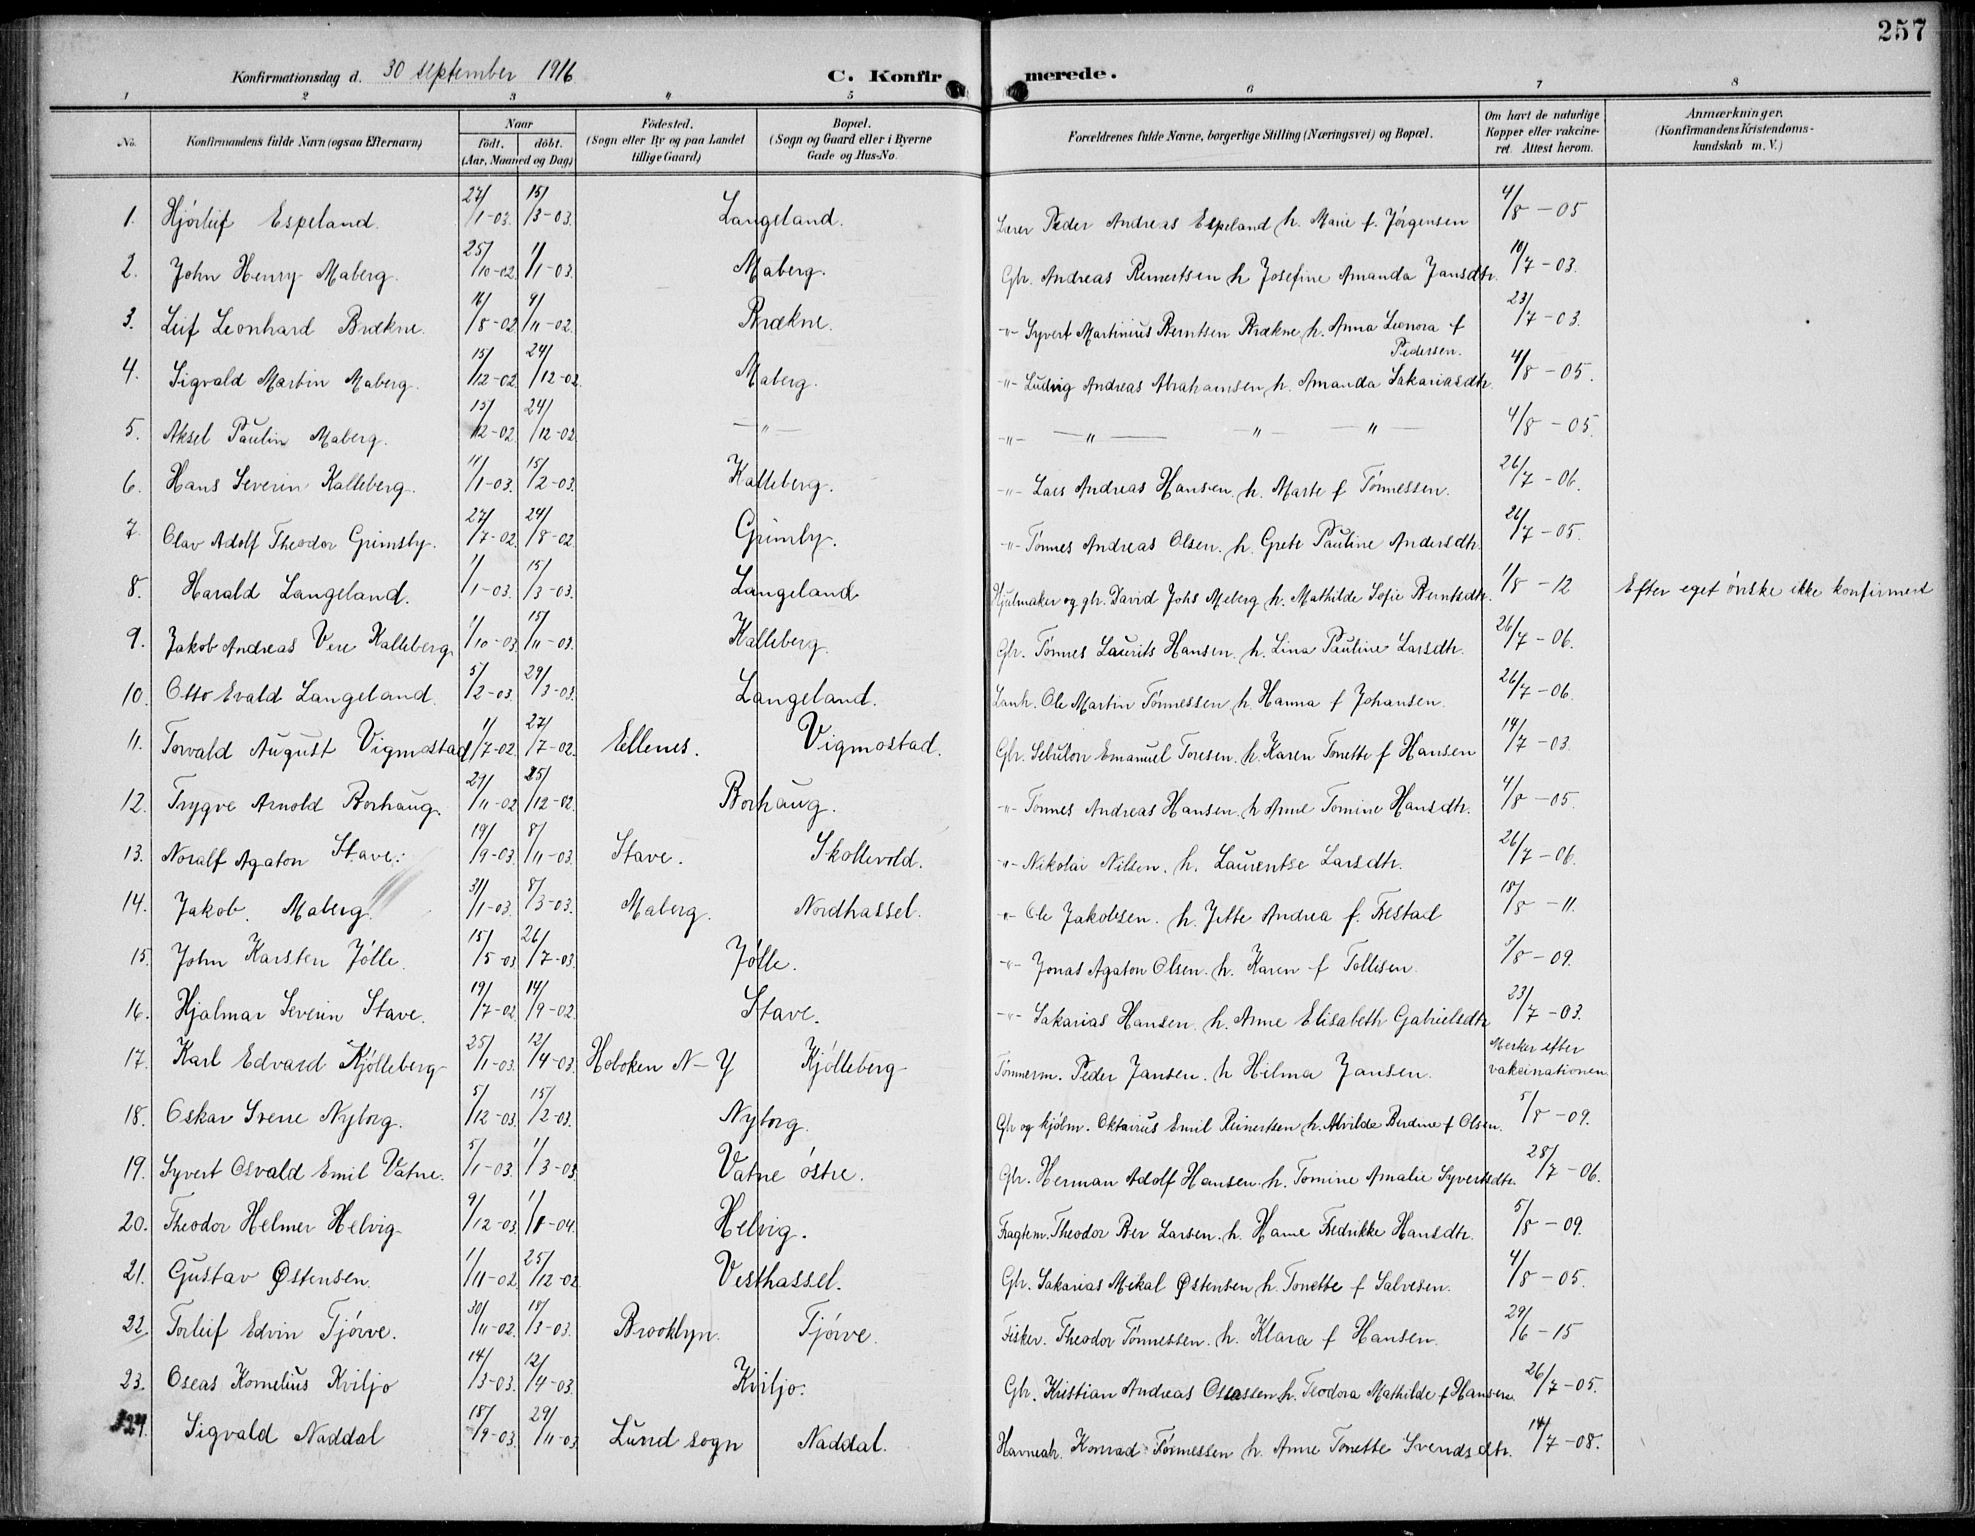 257
Konfirmationsdag d. 30 september 1916 C. Konfirmerede.
1 2 3 4 5 6 7 8
No. Konfirmandens fulde Navn (ogsaa Efternavn) Naar födt. döbt. (Aar, Maaned og Dag) Födested. (Sogn eller By og paa Landet tillige Gaard) Bopæl. (Sogn og Gaard eller i Byerne Gade og Hus-No. Forældrenes fulde Navne, borgerlige Stilling (Næringsvei) og Bopæl. Om havt de naturlige Kopper eller vakcineret. Attest herom. Anmærkninger. (Konfirmandens Kristendomskundskab m. V.)
1. Hjörleif Espeland. 27/1-03. 15/3-03. Langeland. Lærer Peder Andreas Espeland h. Marie f. Jørgensen 4/8-05
2. John Henry Maberg. 25/10-02 1/1-03. Maberg. Gbr. Andreas Reinertsen h Josefine Amanda Jansdtr. 10/7-03.
3. Leif Leonhard Brækne. 16/8-02 9/11-02. Brækne. -"- Syvert Martinius Berntsen Brækne, h. Anna Leonora f Pedersen. 23/7-03.
4. Sigvald Martin Maberg. 15/12-02 24/12-02. Maberg. -"- Ludvig Andreas Abrahamsen, h. Amanda Sakariasdtr. 4/8-05.
5. Aksel Paulin Maberg. 15/12-02. 24/12-02 -"- -"- -"- -"- -"- 4/8-05.
6. Hans Severin Kalleberg. 11/1-03. 15/2-03. Kalleberg. -"- Lars Andreas Hansen. h. Marte f Tönnessen. 26/7-06.
7. Olav Adolf Theodor Grimsby. 27/7-02. 24/8-02 Grimby. -"- Tönnes Andreas Olsen. h. Grete Pauline Andersdtr. 26/7-05.
8. Harald Langeland. 1/1-03. 15/3-03. Langeland Hjulmaker og gbr. David Johs Meberg h. Mathilde Sofie Berntsdtr. 1/8-12 Efter eget önske ikke konfirmert
9. Jakob Andreas Vere Kalleberg 1/10-03 15/11-03. Kalleberg. Gbr. Tönnes Laurits Hansen. h. Lina Pauline Larsdtr. 26/7-06.
10. Otto Evald Langeland. 5/2-03. 29/3-03. Langeland. Ole Martin Tönnessen h. Hanna f Johansen. 26/7-06.
11. Torvald August Vigmostad 1/7-02. 27/7-02. Ellenes. Vigmostad. Gbr. Sebulon Emanuel Toresen. h. Karen Tonette f Hansen 14/7-03.
12. Trygve Arnold Borhaug. 29/11-02 25/12-02. Borhaug. -"- Tönnes Andreas Hansen. h Anne Tomine Hansdtr. 4/8-05.
13. Noralf Agaton Stave. 19/9-03 8/11-03. Stave. Skollevold. -"- Nikolai Nilsen. h. Laurentse Larsdtr. 26/7-06.
14. Jakob. Maberg. 31/1-03. 8/3-03. Maberg. Nordhassel. -"- Ole Jakobsen. h. Jette Andrea f. Bestad 18/8-11.
15. John Karsten Jölle. 15/5-03 26/7-03. Jölle. -"- Jonas Agaton Olsen. h. Karen f Tollisen. 3/8-09.
16. Hjalmar Severin Stave. 19/7-02 14/9-02. Stave. -"- Sakarias Hansen. h. Anne Elisabeth Gabrielsdtr 23/7-03.
17. Karl Edvard Kjölleberg 25/1-03. 12/4-03. Hoboken N-Y Kjölleberg Tömmerm. Peder Jansen. h Hilma Jansen. Merker efter vakcinationen.
18. Oskar Sverre Nyborg. 5/12-03. 15/2-03. Nyborg. Gbr og kjölm. Oktavius Emil Reinertsen h. Alvilde Berdine f Olsen. 5/8-09.
19. Syvert Osvald Emil Vatne. 5/1-03. 1/3-03. Vatne östre. Gbr. Herman Adolf Hansen. h. Tomine Amalie Syvertsdtr. 28/7-06.
20. Theodor Helmer Helvig 9/12-03. 1/1-04. Helvig. Fragtem. Theodor Ber Larsen. h. Hanne Fredrikke Hansdtr. 5/8-09.
21. Gustav Østensen. 1/11-02. 25/12-02 Vesthassel. Gbr. Sakarias Mekal Østensen h. Tonette f Salvesen. 4/8-05.
22. Torleif Edvin Tjörve. 30/11-02. 18/3-03. Brooklyn. Tjörve. Fisker. Theodor Tönnessen. h. Klara f Hansen. 29/6-15
23. Oseas Kornelius Kviljo 14/3-03. 12/4-03. Kviljo. Gbr. Kristian Andreas Oseassen h. Teodora Mathilde f Hansen. 26/7-05.
24. Sigvald Naddal 18/9-03. 29/11-03 Lund sogn Naddal. Konrad Tönnessen h. Anne Tonette Svendsdtr. 14/7-08.